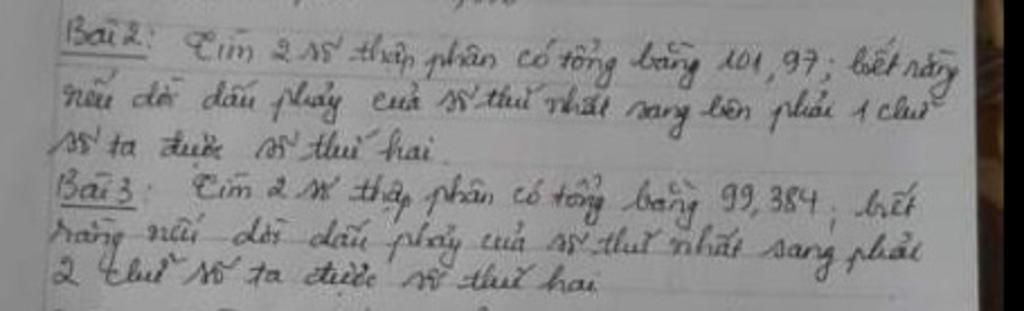 Bài 2: Tìm 2 số thập phân có tổng bằng 101,97; biết rằng
nếu dời dấu phẩy của số thứ nhất sang bên phải 1 chữ
số ta được số thứ hai.
Bài 3: Tìm 2 số thập phân có tổng bằng 99,384; biết
rằng nếu dời dấu phẩy của số thứ nhất sang phải
2 chữ số ta được số thứ hai.